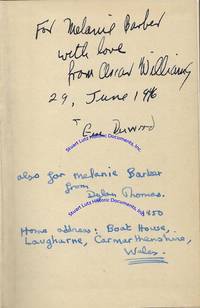 For Melanie Barber
with love
from Oscar Williams
29, June 1946
Gene Derwood
also for Melanie Barber
from
Dylan Thomas.
1950
Home address: Boat House,
Laugharne, Carmarthenshire,
Wales.
Stuart Lutz Historic Documents, Inc.
Stuart Lutz Historic Documents, Inc.
Stuart Lutz Historic Documents, Inc.